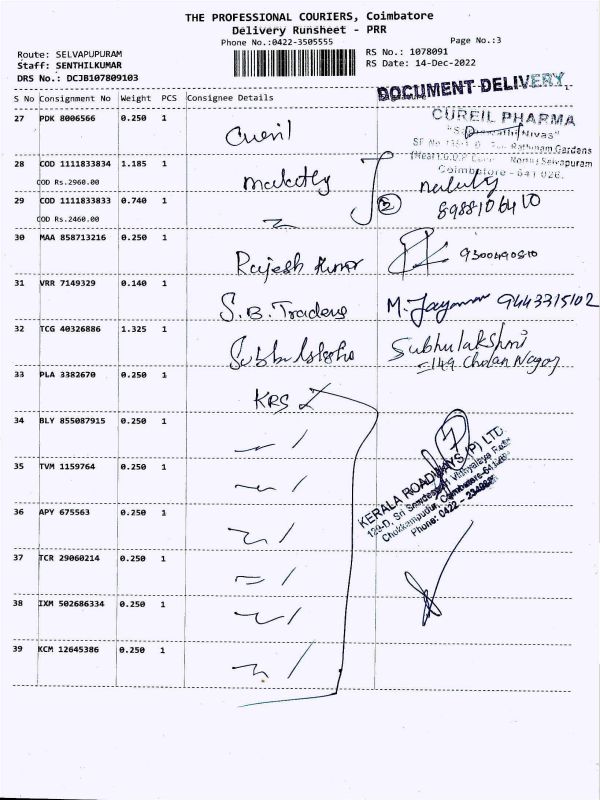 THE PROFESSIONAL COURIERS, Coimbatore
Delivery Runsheet - PRR
Phone No.:0422-3505555
Page No.:3
Route: SELVAPUPURAM
Staff: SENTHILKUMAR
DRS No.: DCJB107809103
RS No.: 1078091
RS Date: 14-Dec-2022
DOCUMENT DELIVERY
S No Consignment No Weight PCS Consignee Details
27 PDK 8006566 0.250 1
CUREIL PHARMA
Nivas"
Rathinam Gardens
Selvapuram
Coimbatore - 641 026.
28 COD 1111833834 1.185 1
COD Rs.2960.00
29 COD 1111833833 0.740 1
COD Rs.2460.00
30 MAA 858713216 0.250 1 Rajesh Kumar 9300490810
31 VRR 7149329 0.140 1 S.B. Traders M. 9443315102
32 TCG 40326886 1.325 1 Subhulakshmi
149 Cholan Nagar
33 PLA 3382670 0.250 1 KRS
34 BLY 855087915 0.250 1
35 TVM 1159764 0.250 1
KERALA ROADWAYS (P) LTD.
129-D, Sri
Chokkampudur, Coimbatore-641
Phone: 0422 -
36 APY 675563 0.250 1
37 TCR 29060214 0.250 1
38 IXM 502686334 0.250 1
39 KCM 12645386 0.250 1